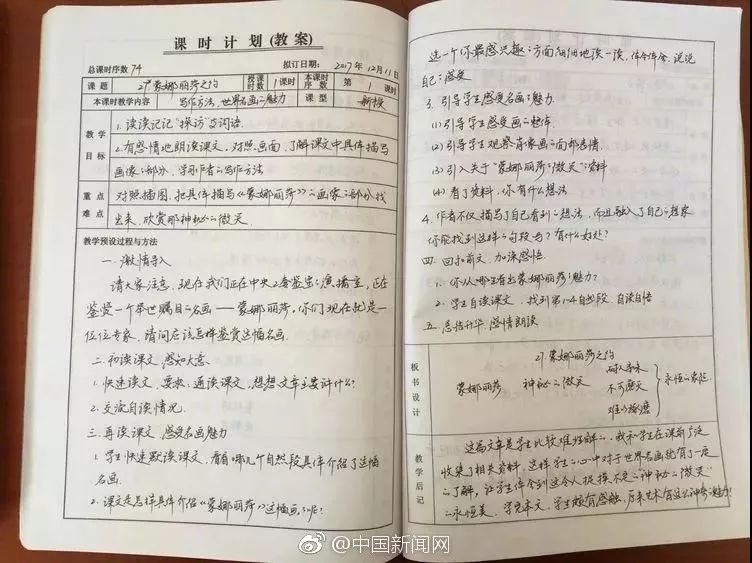 课时计划(教案)
总课时序数 74 拟订日期: 2017年12月11日
课题 21*蒙娜丽莎之约 授课时数 1课时 本课时序数 第1课时
本课时教学内容 写作方法,世界名画的魅力 课型 新授
教学目标
1.读读记记"探访"等词语.
2.有感情地朗读课文,对照画面,了解课文中具体描写
画像的部分,学习作者的写作方法
重点难点
对照插图,把具体描写《蒙娜丽莎》的画像的部分找
出来,欣赏那神秘的微笑
教学预设过程与方法
一.激情导入
请大家注意,现在我们正在中央2套鉴宝的演播室,正在
鉴赏一个举世瞩目的名画——蒙娜丽莎,你们现在就是一
位位专家,请问应该怎样鉴赏这幅名画.
二.初读课文,感知大意
1.快速读文,要求:通读课文,想想文章主要讲什么?
2.交流自读情况.
三.再读课文,感受名画魅力
1.学生快速默读课文,看看哪几个自然段具体介绍了这幅
名画.
2.课文是怎样具体介绍《蒙娜丽莎》这幅画的呢?
选一个你最感兴趣的方面细细地读一读,体会体会,说说
自己的感受
3.引导学生感受名画的魅力.
(1)引导学生感受画的整体
(2)引导学生观察肖像画的面部表情.
(3)引入关于"蒙娜丽莎的微笑"的资料
(4)看了资料,你有什么想法
4.作者不仅描写了自己看到的想法,而且融入了自己的想象
你能找到这样的句段吗?有什么好处?
四 回扣前文,加深感悟
1.你从哪里看出蒙娜丽莎的魅力?
2.学生自读课文,找到第1-4自然段,自读自悟
五 总结升华,感情朗读
板书设计
21蒙娜丽莎之约
蒙娜丽莎 神秘的微笑 耐人寻味 不可磨灭 难以捉摸 永恒的象征
教学后记
这篇文章是学生比较难理解的,我和学生在课前广泛
收集了相关资料,这样学生心中对于世界名画就有了一定
的了解,让学生体会到这令人捉摸不定的"神秘的微笑"
的永恒美.学完本文,学生颇有感触,历来艺术有这么神奇的魅力!
@中国新闻网